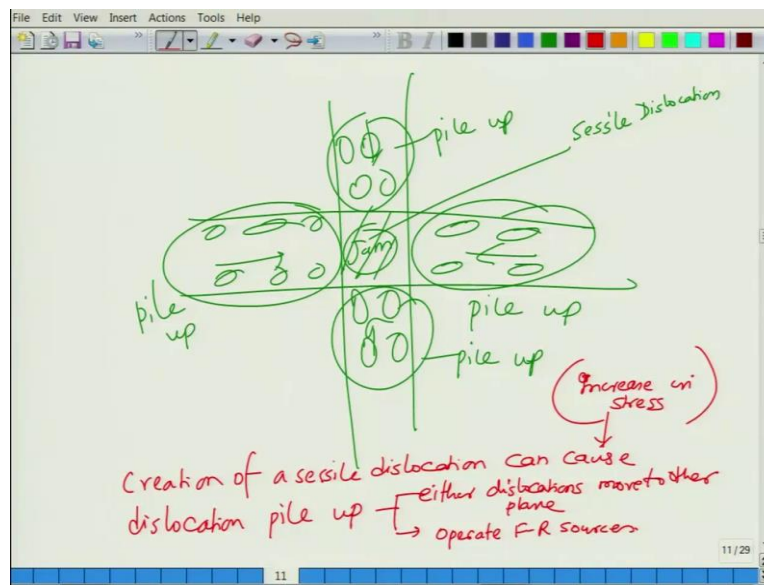 File Edit View Insert Actions Tools Help
B I
pile up
Sessile Dislocation
Jam
pile
up
pile up
pile up
(Increase in
stress)
Creation of a sessile dislocation can cause
dislocation pile up either dislocations move to other
plane
→ operate F-R sources
11/29
11